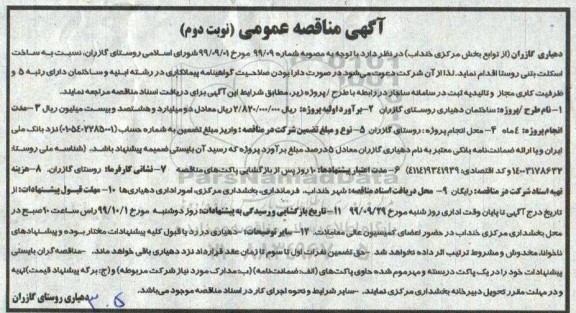 آگهی مناقصه عمومی (نوبت دوم)
دهیاری گازران (از توابع بخش مرکزی خنداب) در نظر دارد با توجه به مصوبه شماره ۹۹/۰۹ مورخ ۹۹/۰۹/۰۱ شورای اسلامی روستای گازران، نسبت به ساخت
اسکلت بتنی روستا اقدام نماید. لذا از آن شرکت دعوت می‌شود در صورت دارا بودن صلاحیت گواهینامه پیمانکاری در رشته ابنیه و ساختمان دارای رتبه ۵ و
ظرفیت کاری مجاز و تائیدیه ثبت در سامانه ساجار در رابطه با طرح / پروژه زیر، مطابق شرایط این آگهی برای دریافت اسناد مناقصه مراجعه نمایند.
۱- نام طرح / پروژه: ساختمان دهیاری روستای گازران ۲- برآورد اولیه پروژه: ریال ۲/۸۲۰/۰۰۰/۰۰۰ ریال معادل دو میلیارد و هشتصد و بیست میلیون ریال ۳- مدت
انجام پروژه: ماه ۴- محل انجام پروژه: روستای گازران ۵- نوع و مبلغ تضمین شرکت در مناقصه: واریز مبلغ تضمین به شماره حساب نزد بانک ملی
ایران و یا ارائه ضمانت‌نامه بانکی معتبر به نام دهیاری گازران معادل ۵ درصد مبلغ برآورد پروژه که رسید آن بایستی ضمیمه پیشنهاد باشد. (شناسه ملی روستا:
۱۴۰۰۳۱۷۸۶۳۲ و کد اقتصادی: ) ۶- مدت اعتبار پیشنهادها: ۱۰ روز پس از بازگشایی پاکت‌های مناقصه ۷- نشانی کارفرما: روستای گازران. ۸- هزینه
تهیه اسناد شرکت در مناقصه: رایگان ۹- محل دریافت اسناد مناقصه: شهر خنداب، فرمانداری، بخشداری مرکزی، امور اداری دهیاری‌ها ۱۰- مهلت قبول پیشنهادات: از
تاریخ درج آگهی تا پایان وقت اداری روز شنبه مورخ ۹۹/۰۹/۲۹ ۱۱- تاریخ بازگشایی و رسیدگی به پیشنهادات: روز دوشنبه مورخ ۹۹/۱۰/۱ راس ساعت ۱۰ صبح در
محل بخشداری مرکزی خنداب در حضور اعضای کمیسیون عالی معاملات. ۱۲- سایر توضیحات: دهیاری در رد یا قبول کلیه پیشنهادات مختار بوده و پیشنهادهای
ناخوانا، مخدوش و مشروط ترتیب اثر داده نخواهد شد. - حق تضمین نفرات اول تا سوم تا زمان عقد قرارداد نزد دهیاری باقی خواهد ماند. - مناقصه‌گران بایستی
پیشنهادات خود را در یک پاکت دربسته و مهرموم شده حاوی پاکت‌های (الف: ضمانت‌نامه) (ب: مدارک مورد نیاز شرکت مربوطه) و (ج: برگه پیشنهاد قیمت) تهیه
و در مهلت مقرر تحویل دبیرخانه بخشداری مرکزی نمایند. - سایر شرایط و نحوه اجرای کار در اسناد مناقصه موجود می‌باشد.
دهیاری روستای گازران